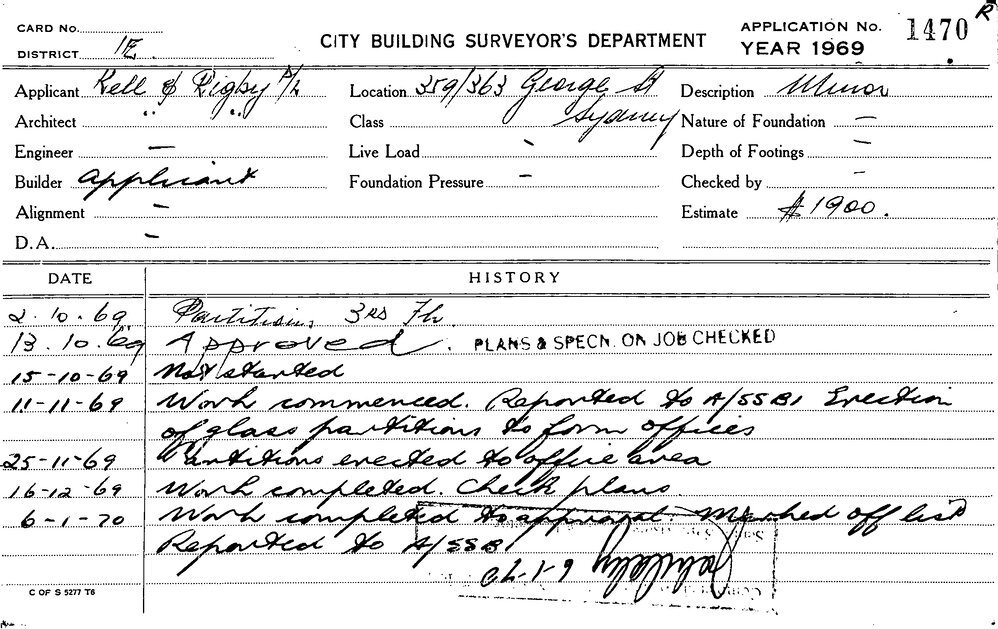 CARD No.
DISTRICT 1E
CITY BUILDING SURVEYOR'S DEPARTMENT
APPLICATION No. 1470 R
YEAR 1969
Applicant Kell & Rigby P/L Location 359/363 George St Sydney Description Minor
Architect " " Class Nature of Foundation —
Engineer — Live Load - Depth of Footings -
Builder Applicant Foundation Pressure - Checked by -
Alignment - Estimate $1900.
D.A. -
DATE HISTORY
2.10.69 Partitions 3RD Flr.
13.10.69 Approved. PLANS & SPECN. ON JOB CHECKED
15-10-69 Not started
11-11-69 Work commenced. Reported to A/SSBI Erection
of glass partitions to form offices
25-11-69 Partitions erected to office area
16-12-69 Work completed. Check plans.
6-1-70 Work completed to approval. Marked off list
Reported to A/SSBI
6-1-70
C OF S 5277 T6